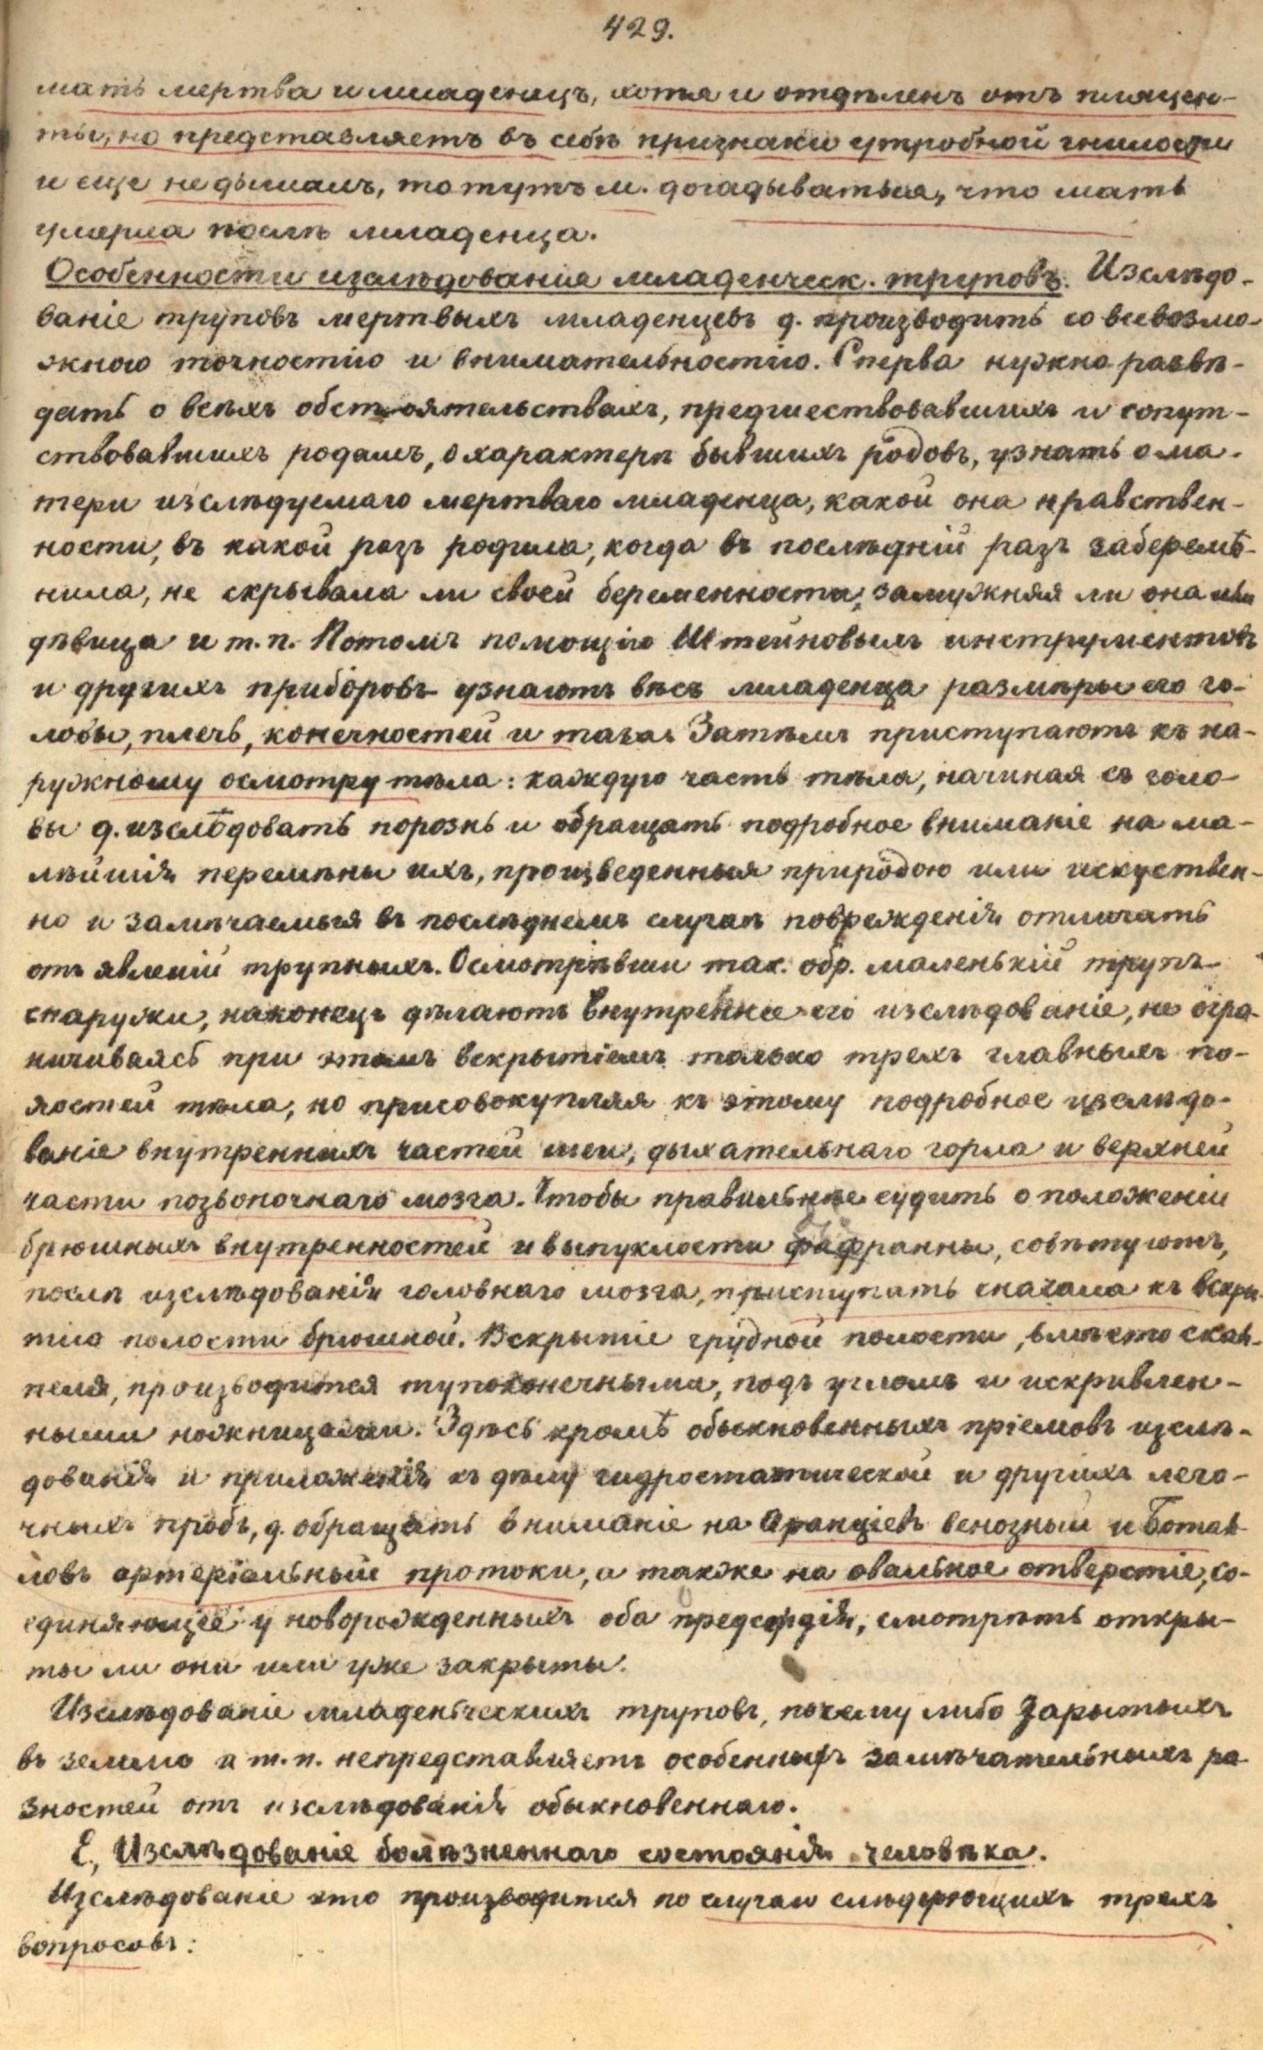 429.
мать мертва и младенецъ, хотя и отдѣленъ отъ плацен-
ты, но представляетъ въ себѣ признаки утробной гнилости
и еще не дышалъ, то тутъ м. догадываться, что мать
умерла послѣ младенца.
Особенности изслѣдованія младенческ. труповъ. Изслѣдо-
ваніе труповъ мертвыхъ младенцевъ д. производить со всевозмо-
жною точностію и внимательностію. Сперва нужно развѣ-
дать о всѣхъ обстоятельствахъ, предшествовавшихъ и сопут-
ствовавшихъ родамъ, о характерѣ бывшихъ родовъ, узнать о ма-
тери изслѣдуемаго мертваго младенца, какой она нравствен-
ности, въ какой разъ родила, когда въ послѣдній разъ заберемѣ-
нила, не скрывала ли своей беременности, замужняя ли она или
дѣвица и т. п. Потомъ помощію Штейновыхъ инструментовъ
и другихъ приборовъ узнаютъ вѣсъ младенца размѣры его го-
ловы, плечь, конечностей и таза. Затѣмъ приступаютъ къ на-
ружному осмотру тѣла: каждую часть тѣла, начиная съ голо-
вы д. изслѣдовать порознь и обращать подробное вниманіе на ма-
лѣйшія перемѣны ихъ, произведенныя природою или искуствен-
но и замѣчаемыя въ послѣднемъ случаѣ поврежденія отличать
отъ явленій трупныхъ. Осмотрѣвши так. обр. маленькій трупъ
снаружи, наконецъ дѣлаютъ внутреннее его изслѣдованіе, не огра-
ничиваясь при этомъ вскрытіемъ только трехъ главныхъ по-
лостей тѣла, но присовокупляя къ этому подробное изслѣдо-
ваніе внутреннихъ частей шеи, дыхательнаго горла и верхней
части позвоночнаго мозга. Чтобы правильнѣе судить о положеніи
брюшныхъ внутренностей и выпуклости діафрагмы, совѣтуютъ,
послѣ изслѣдованія головнаго мозга, приступать сначала къ вскры-
тію полости брюшной. Вскрытіе грудной полости, вмѣсто скаль-
пеля, производится тупоконечными, подъ угломъ и искривлен-
ными ножницами. Здѣсь кромѣ обыкновенныхъ пріемовъ изслѣ-
дованія и приложенія къ дѣлу гидростатической и другихъ лего-
чныхъ пробъ, д. обращать вниманіе на Аранціевъ венозный и Ботал-
ловъ артеріальный протоки, а также на овальное отверстіе, со-
единяющее у новорожденныхъ оба предсердія, смотрѣть откры-
ты ли они или уже закрыты.
Изслѣдованіе младенческихъ труповъ, почему либо зарытыхъ
въ землю и т. п. непредставляетъ особенныхъ замѣчательныхъ ра-
зностей отъ изслѣдованія обыкновеннаго.
Е, Изслѣдованіе болѣзненнаго состоянія человѣка.
Изслѣдованіе это производится по случаю слѣдующихъ трехъ
вопросовъ: